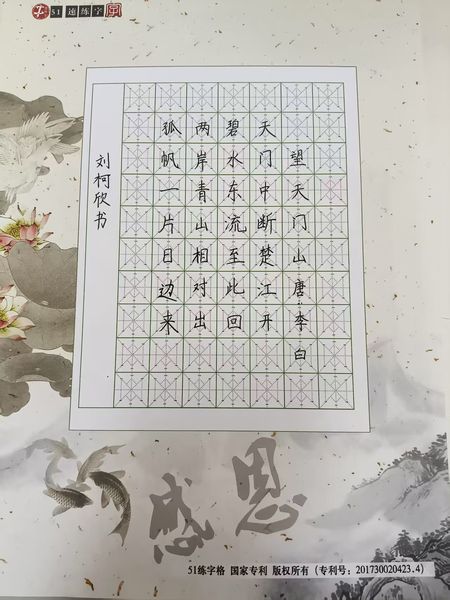 51速练字
望天门山唐李白
天门中断楚江开
碧水东流至此回
两岸青山相对出
孤帆一片日边来
刘柯欣书
感恩
51练字格 国家专利 版权所有（专利号：201730020423.4）